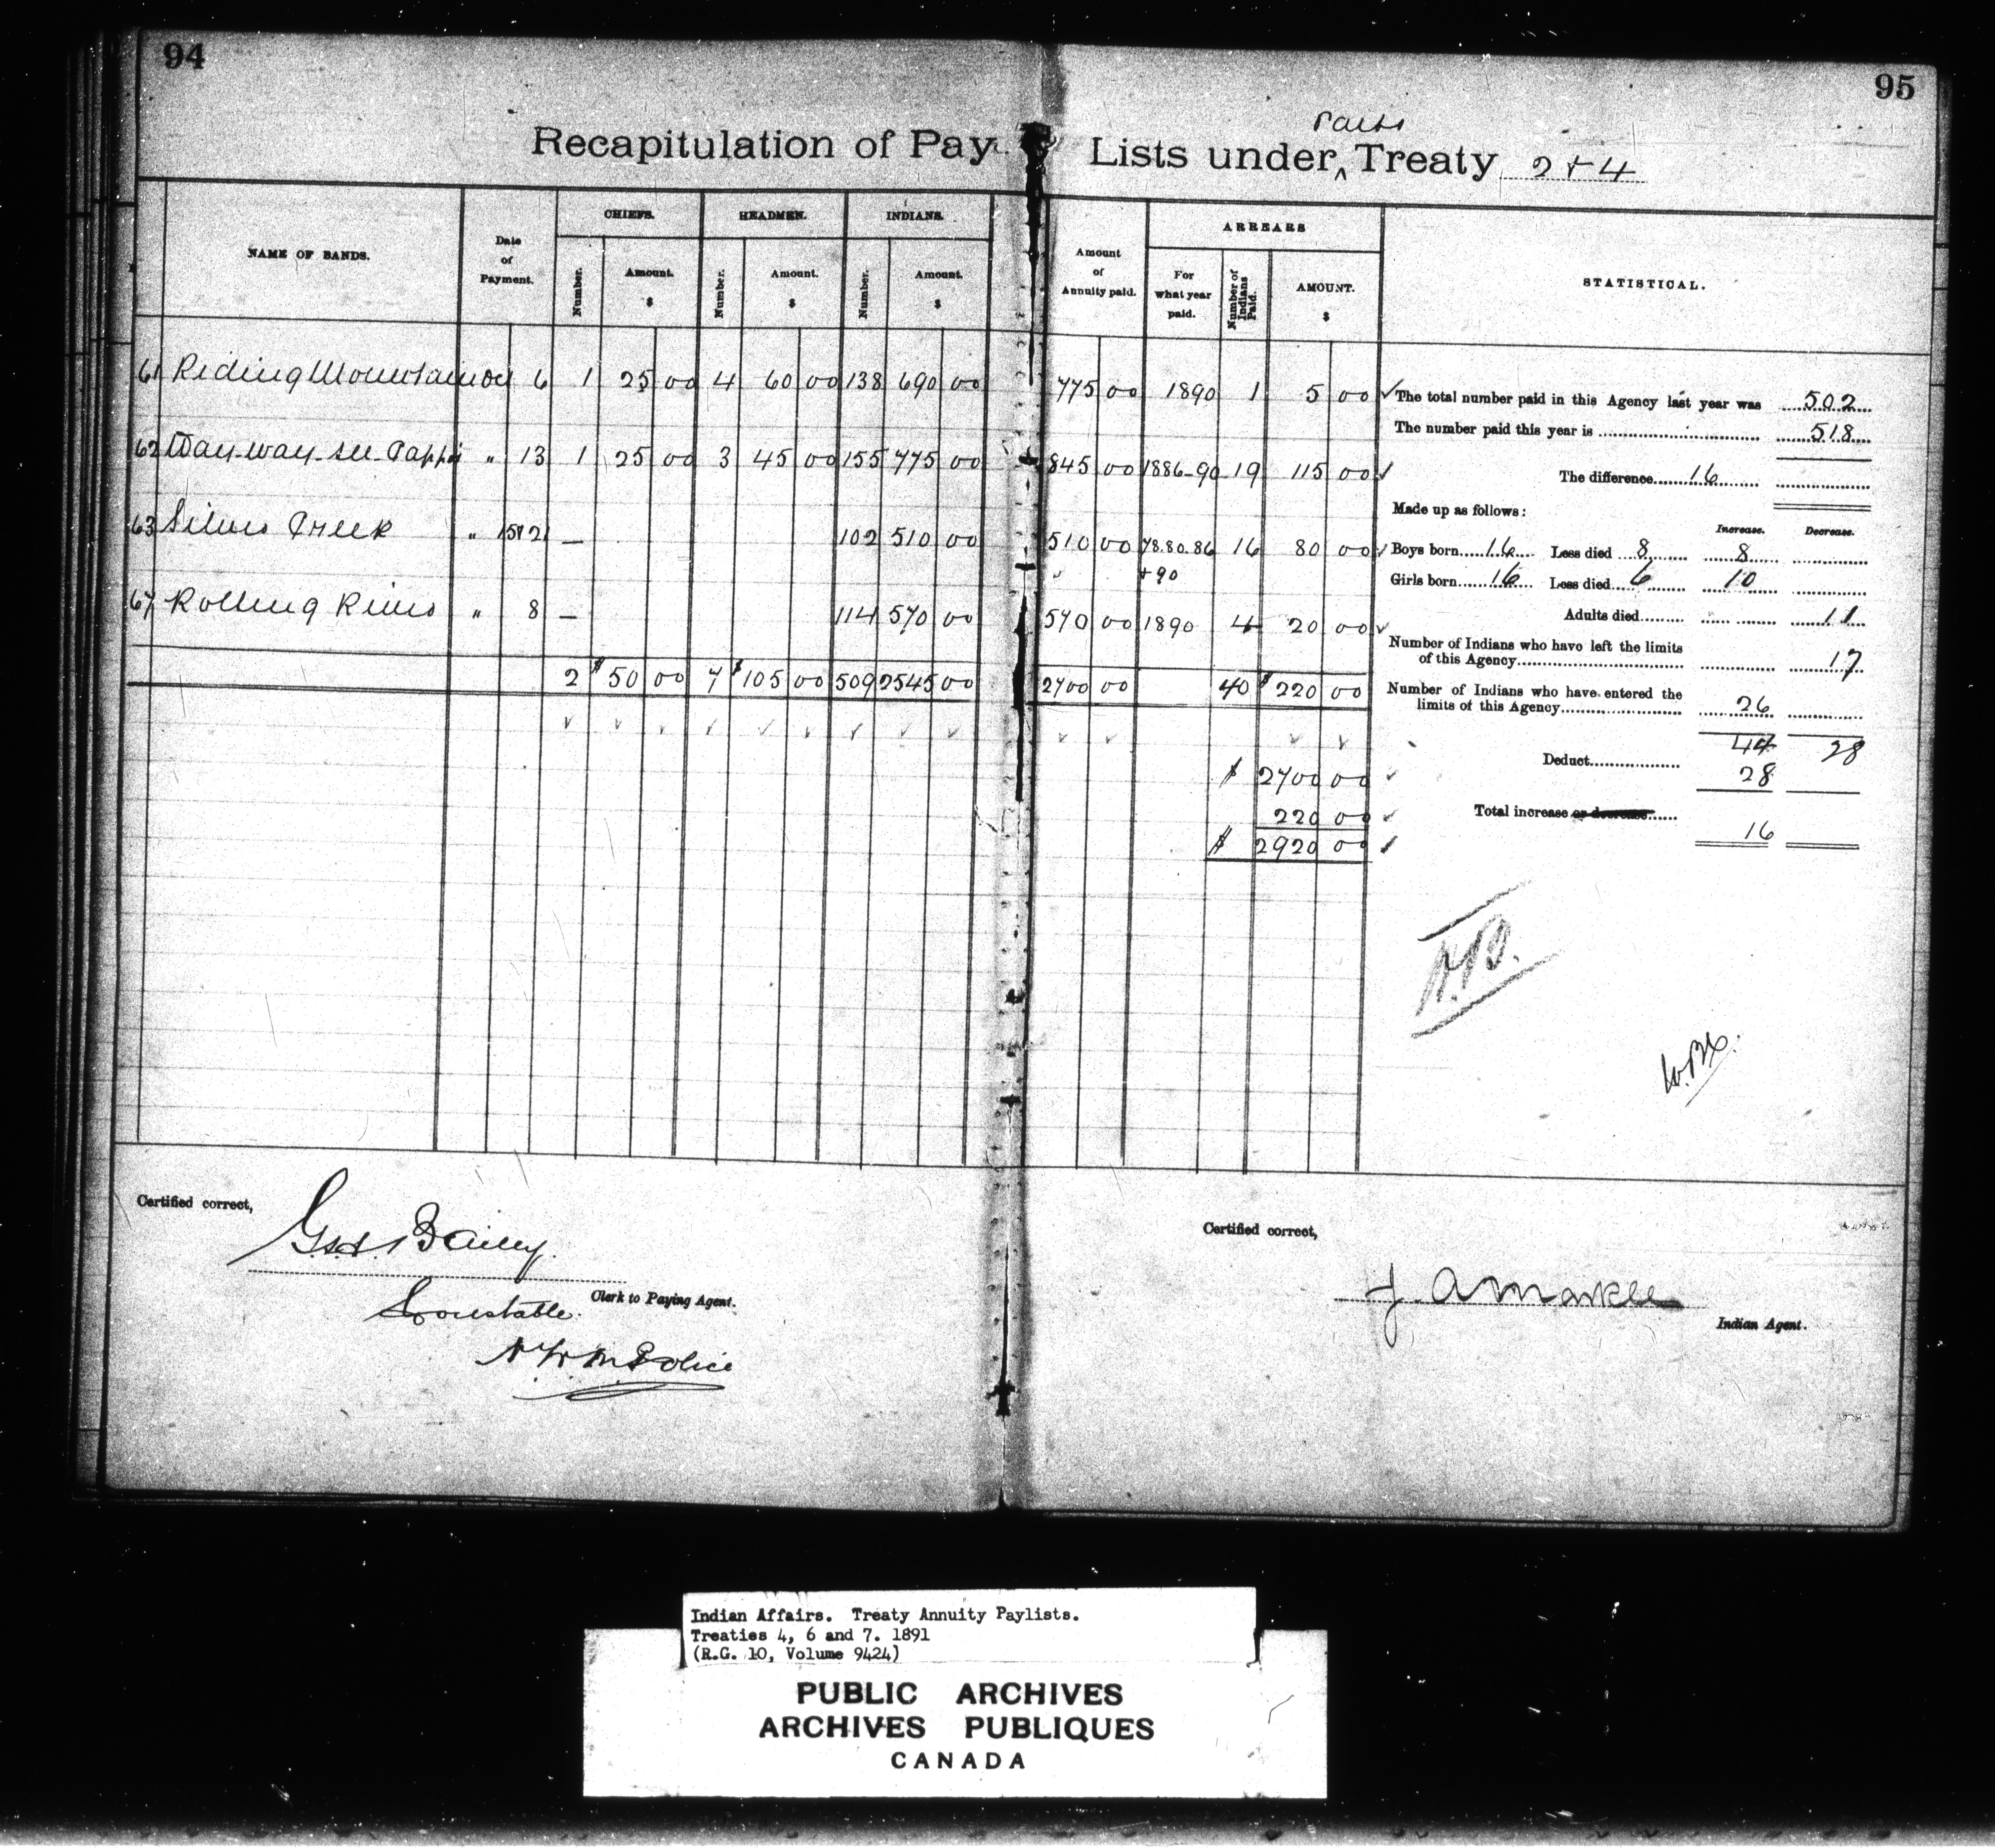 94
95
Recapitulation of Pay Lists under Treaty 2 + 4
Parts
NAME OF BANDS.
Date of Payment.
CHIEFS.
HEADMEN.
INDIANS.
Number. Amount. $ Number. Amount. $ Number. Amount. $
Amount of Annuity paid.
ARREARS
For what year paid.
Number of Indians Paid.
AMOUNT. $
STATISTICAL.
61 Riding Mountain 6 1 25 00 4 60 00 138 690 00 775 00 1890 1 5 00
62 Way-way-see-Cappo " 13 1 25 00 3 45 00 155 775 00 845 00 1886-90 19 115 00
63 Silver Creek " — 102 510 00 510 00 78.80.86 + 90 16 80 00
67 Rolling River " 8 — 114 570 00 570 00 1890 4 20 00
2 $ 50 00 7 $ 105 00 509 2545 00 2700 00 40 $ 220 00
$ 2700 00
220 00
$ 2920 00
The total number paid in this Agency last year was 502
The number paid this year is 518
The difference 16
Made up as follows:
Increase. Decrease.
Boys born 16 Less died 8 8
Girls born 16 Less died 6 10
Adults died 11
Number of Indians who have left the limits
of this Agency 17
Number of Indians who have entered the
limits of this Agency 26
44 28
Deduct 28
Total increase or decrease 16
Certified correct,
Bailey.
Clerk to Paying Agent.
Constable.
N.W.M. Police
Certified correct,
J. A Markle
Indian Agent.
Indian Affairs. Treaty Annuity Paylists.
Treaties 4, 6 and 7. 1891
(R.G. 10, Volume 9424)
PUBLIC ARCHIVES
ARCHIVES PUBLIQUES
CANADA